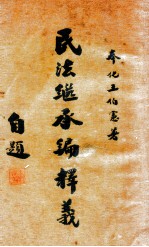 奉化王伯憲著
民法繼承編釋義
自題